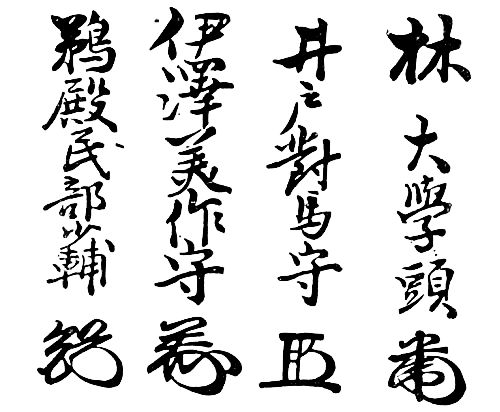 林 大學頭
井戸對馬守
伊澤美作守
鵜殿民部少輔